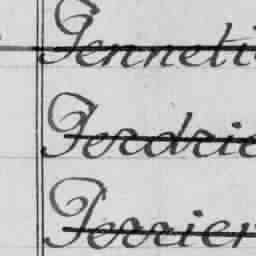 Penneti
Perdrie
Perrier